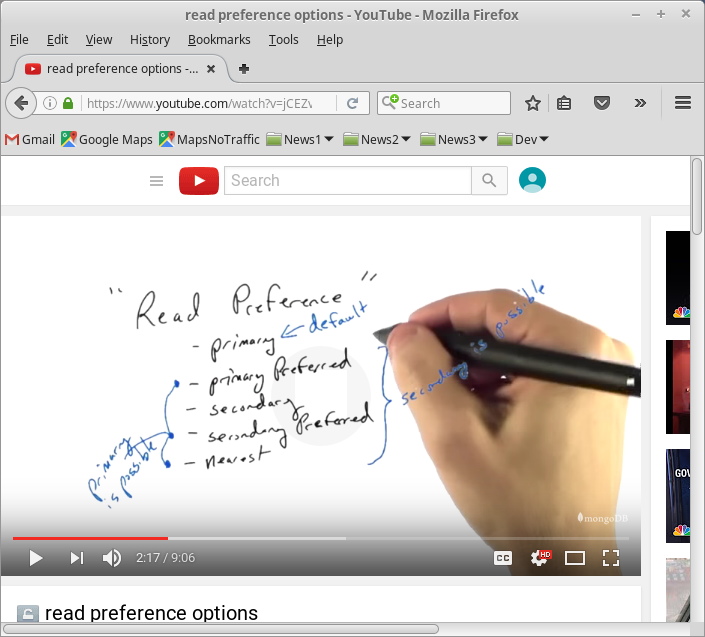 read preference options - YouTube - Mozilla Firefox
File Edit View History Bookmarks Tools Help
read preference options -...
https://www.youtube.com/watch?v=jCEZv
Search
Gmail Google Maps MapsNoTraffic News1 News2 News3 Dev
Search
" Read Preference "
- primary ← default
- primary Preferred
- secondary
- secondary Preferred
- nearest
secondary is possible
primary
is possible
GOV
mongoDB
2:17 / 9:06
CC
HD
read preference options